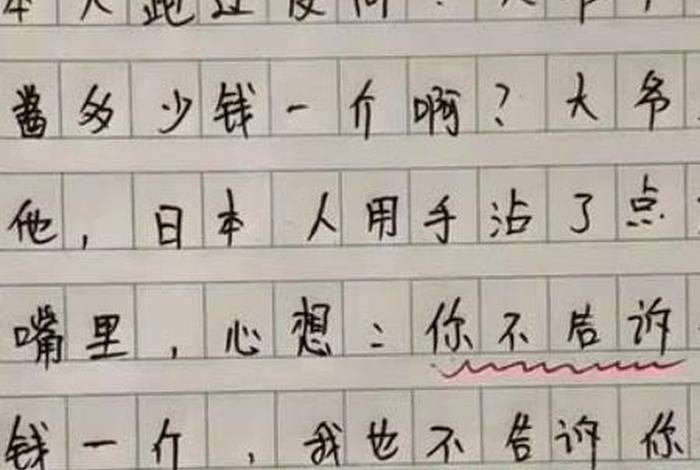 本人跑过
酱多少钱一介啊？大爷
他，日本人用手沾了点
嘴里，心想：你不告诉
钱一介，我也不告诉你